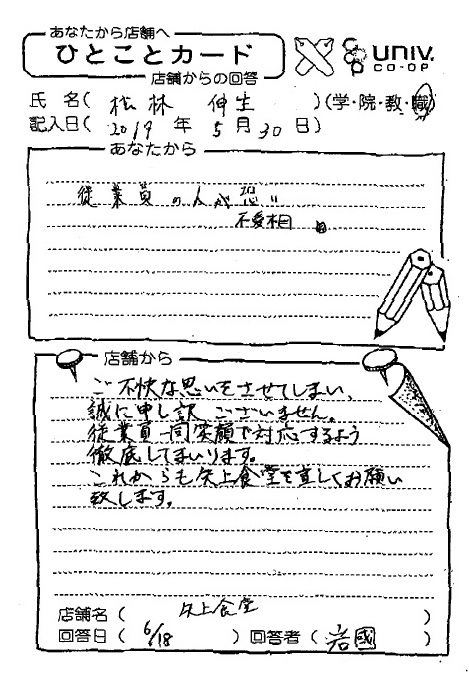 あなたから店舗へ
ひとことカード
店舗からの回答
UNIV.
CO-OP
氏名( 松林 伸生 )(学・院・教・職)
記入日( 2019 年 5 月 30 日)
あなたから
従業員の人が恐い
不愛想
店舗から
ご不快な思いをさせてしまい、
誠に申し訳ございません。
従業員一同笑顔で対応するよう
徹底してまいります。
これからも矢上食堂を宜しくお願い
致します。
店舗名( 矢上食堂 )
回答日( 6/18 ) 回答者( 岩國 )